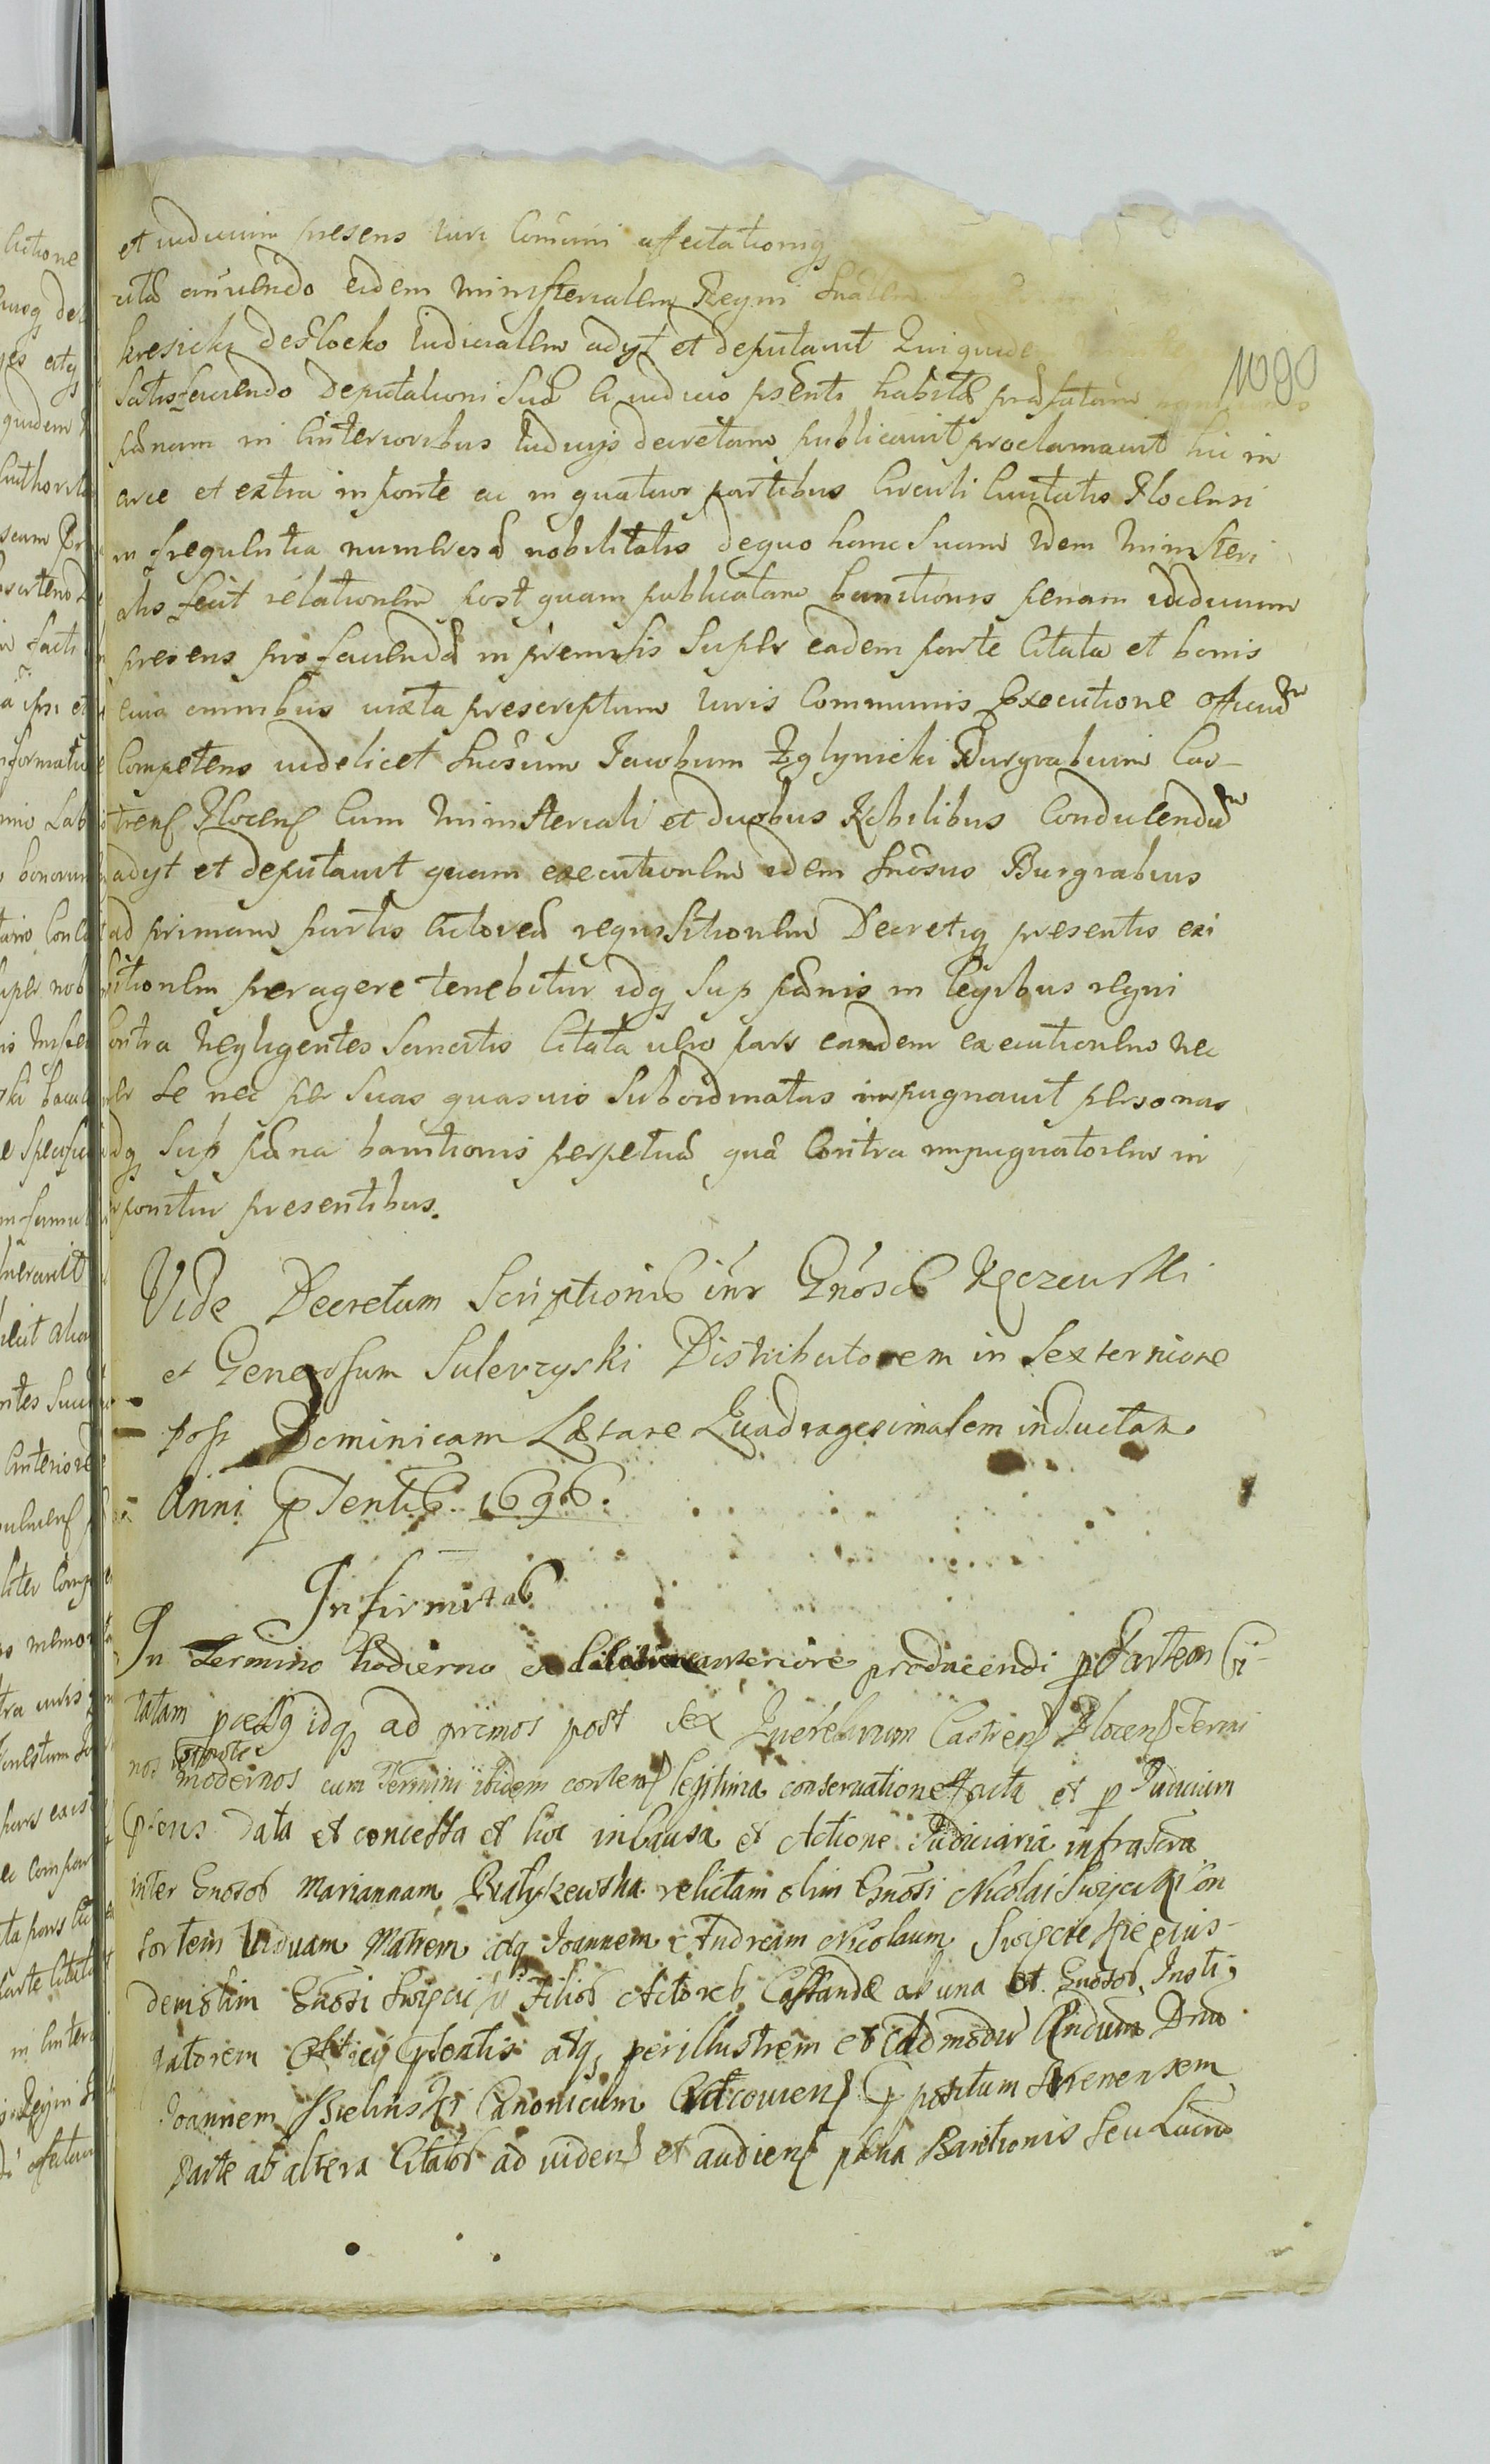 et iudicium presens Iuri Comuni affectationiq
annuendo eidem ministerialem Regni Gnalem
kresicki de Plocko Iudicialem adyt et deputavit Qui quide
1090
Satisfaciendo Deputationi Suæ a iudicio psenti habitæ præfatam
pænam in Anterioribus Iudicijs decretam publicavit proclamavit hic in
arce et extra in ponte ac in quatuor partibus Circuli Civitatis Plocensi
in frequentia numerosa nobilitatis de quo hanc suam idem Ministeri
alis fecit relationem post quam publicatam banitionis penam iudicium
presens pro facienda in premissis super eadem parte Citata et bonis
eius omnibus iuxta prescriptum Iuris Communis Executione officium
Competens videlicet Gnosum Iacobum Zglynicki Burgrabium Cas-
trens Plocens Cum Ministeriali et duobus Nobilibus Conducendum
adyt et deputavit quam executionem idem Gnosus Burgrabius
ad primam partis Actoreæ requisitionem Decretiq presentis exi
bitionem peragere tenebitur idq sup pænis in legibus regni
Contra Negligentes Sancitis Citata vero pars eandem executionem nec
per se nec per suas quasvis Subordinatas impugnavit personas
idq sup pæna banitionis perpetuæ quæ Contra impugnatorem in
terponitur presentibus.
Vide Decretum Scriptionis intr Gnosos Kęczewski
et Generosum Sulerzyski Distributorem in Sexterniore
post Dominicam Lætare Quadragesimalem inductam
Anni psentis 1696.
Infirmitas
In Termino hodierno ex anteriore producendi p Partem Ci-
tatam idq ad primos post sex Querelarum Castrens Plocens Termi
nos modernos cum Termini ibidem contens legitima conservatione facta et p Iudicium
psens data et concessa et hoc in Causa et Actione Iudiciaria infrascra
inter Gnosos Mariannam relictam olim Gnosi Nicolai Swięcicki Con
sortem Viduam Matrem atq Joannem Andream Nicolaum Swięcickie eius-
dem olim Gnosi Swięcicki Filios Actores Cassandæ ab una et Gnosos Insti
gatorem Officij psentis atq perillustrem et Admodum Rndum Dnum
Joannem Bielinski Canonicum Præpositum Srenensem
Parte ab altera Citatos ad videns et audiens pæna Banitionis seu Lucro